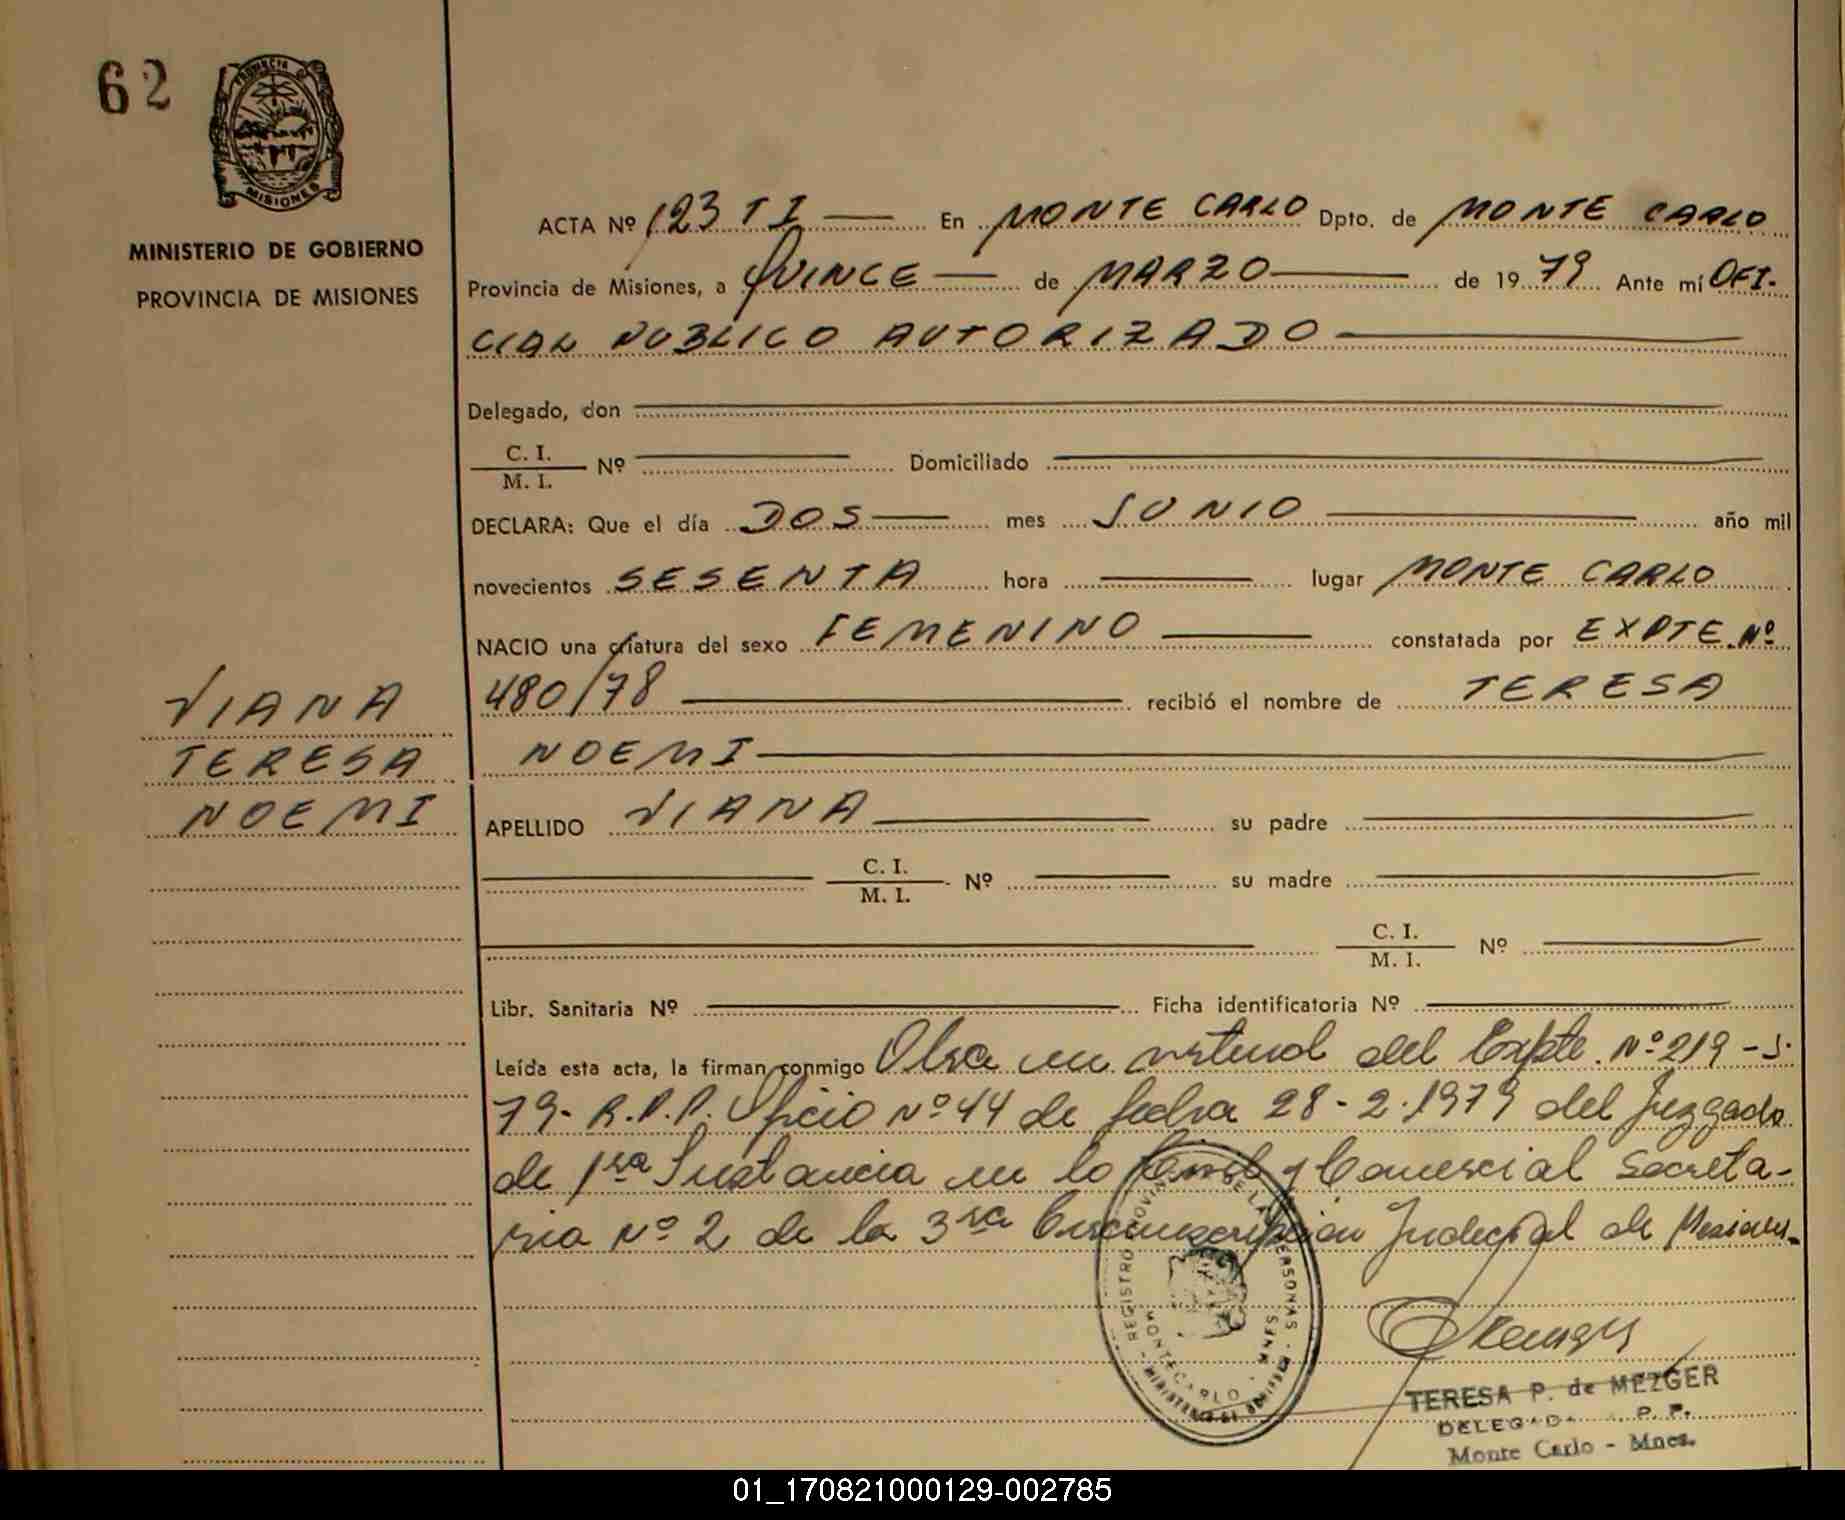 62
PROVINCIA DE
MISIONES
MINISTERIO DE GOBIERNO
PROVINCIA DE MISIONES
ACTA Nº 123 TI En MONTE CARLO Dpto. de MONTE CARLO
Provincia de Misiones, a QUINCE de MARZO de 1979 Ante mí OFI-
CIAL PUBLICO AUTORIZADO
Delegado, don
C. I.
M. I. Nº Domiciliado
DECLARA: Que el día DOS mes JUNIO año mil
novecientos SESENTA hora lugar MONTE CARLO
NACIO una criatura del sexo FEMENINO constatada por EXPTE. Nº
480/78 recibió el nombre de TERESA
NOEMI
VIANA
TERESA
NOEMI
APELLIDO VIANA su padre
C. I.
M. I. Nº su madre
C. I.
M. I. Nº
Libr. Sanitaria Nº Ficha identificatoria Nº
Leída esta acta, la firman conmigo Obra en virtud del Expte. Nº 219-S-
79- R.P.P. Oficio Nº 44 de fecha 28-2-1979 del Juzgado
de 1ra Instancia en lo Civil y Comercial Secreta-
ria Nº 2 de la 3ra Circunscripción Judicial de Misiones-
REGISTRO PROVINCIAL DE LAS PERSONAS
MONTECARLO - MNES
MINISTERIO DE GOBIERNO
TERESA P. de MEZGER
DELEGADA P. P.
Monte Carlo - Mnes.
01_170821000129-002785